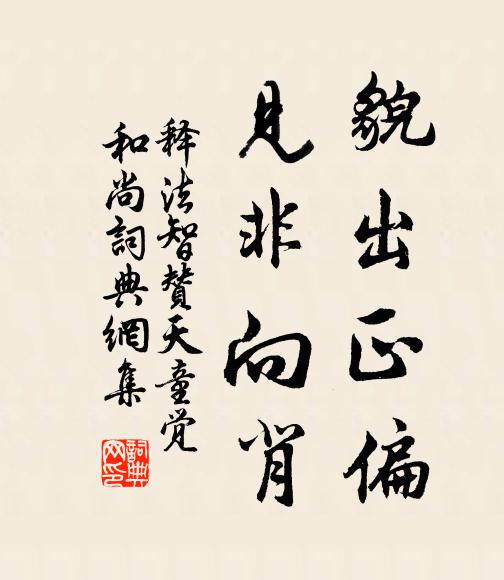 貌出正偏
見非向背
释法智贊天童觉
和尚詞典網集
詞典网印